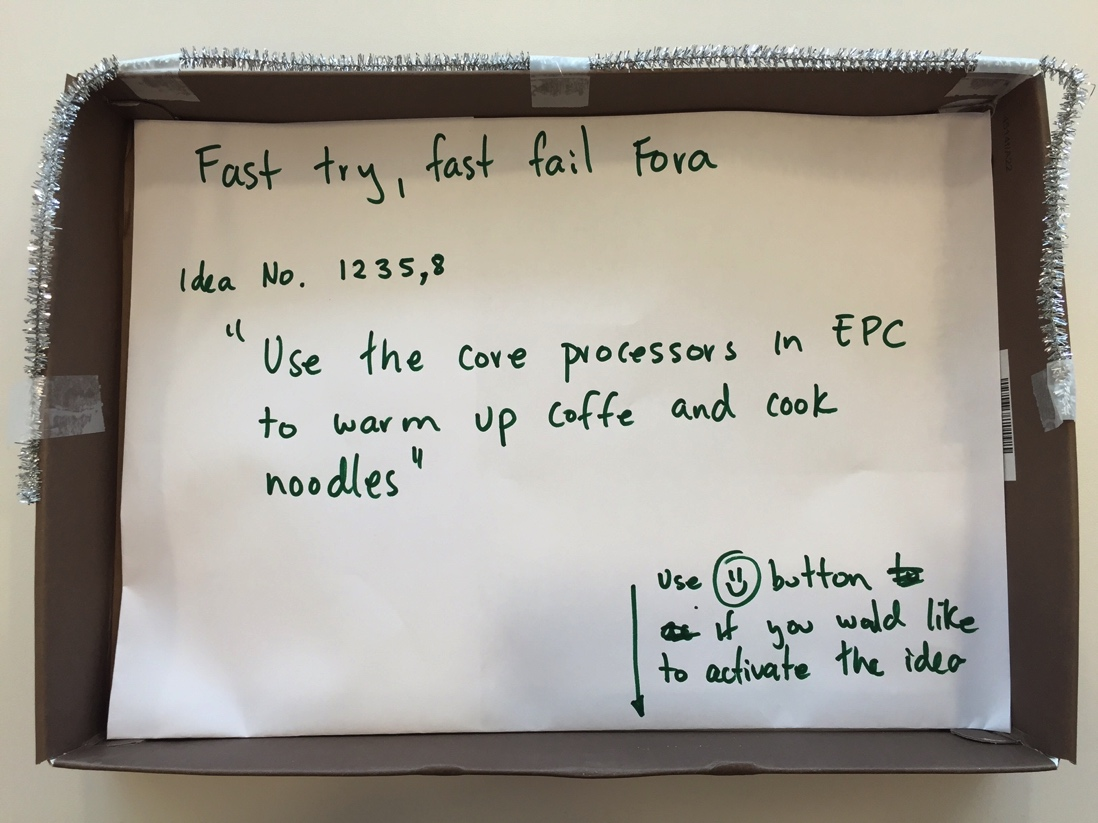 Fast try, fast fail Fora
Idea No. 1235,8
"Use the core processors in EPC
to warm up coffe and cook
noodles"
use button
if you would like
to activate the idea